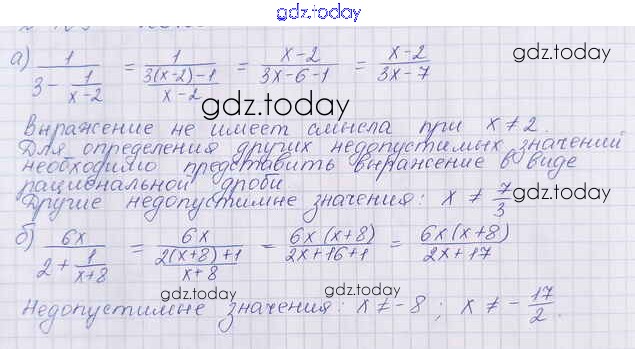 gdz.today
а) 1/(3 − 1/(x−2)) = 1/((3(x−2)−1)/(x−2)) = (x−2)/(3x−6−1) = (x−2)/(3x−7)
gdz.today
gdz.today
gdz.today
Выражение не имеет смысла при x ≠ 2.
Для определения других недопустимых значений
необходимо представить выражение в виде
рациональной дроби.
Другие недопустимые значения: x ≠ 7/3
gdz.today
gdz.today
б) 6x/(2 + 1/(x+8)) = 6x/((2(x+8)+1)/(x+8)) = 6x(x+8)/(2x+16+1) = 6x(x+8)/(2x+17)
gdz.today
gdz.today
Недопустимые значения: x ≠ −8; x ≠ −17/2.
gdz.today